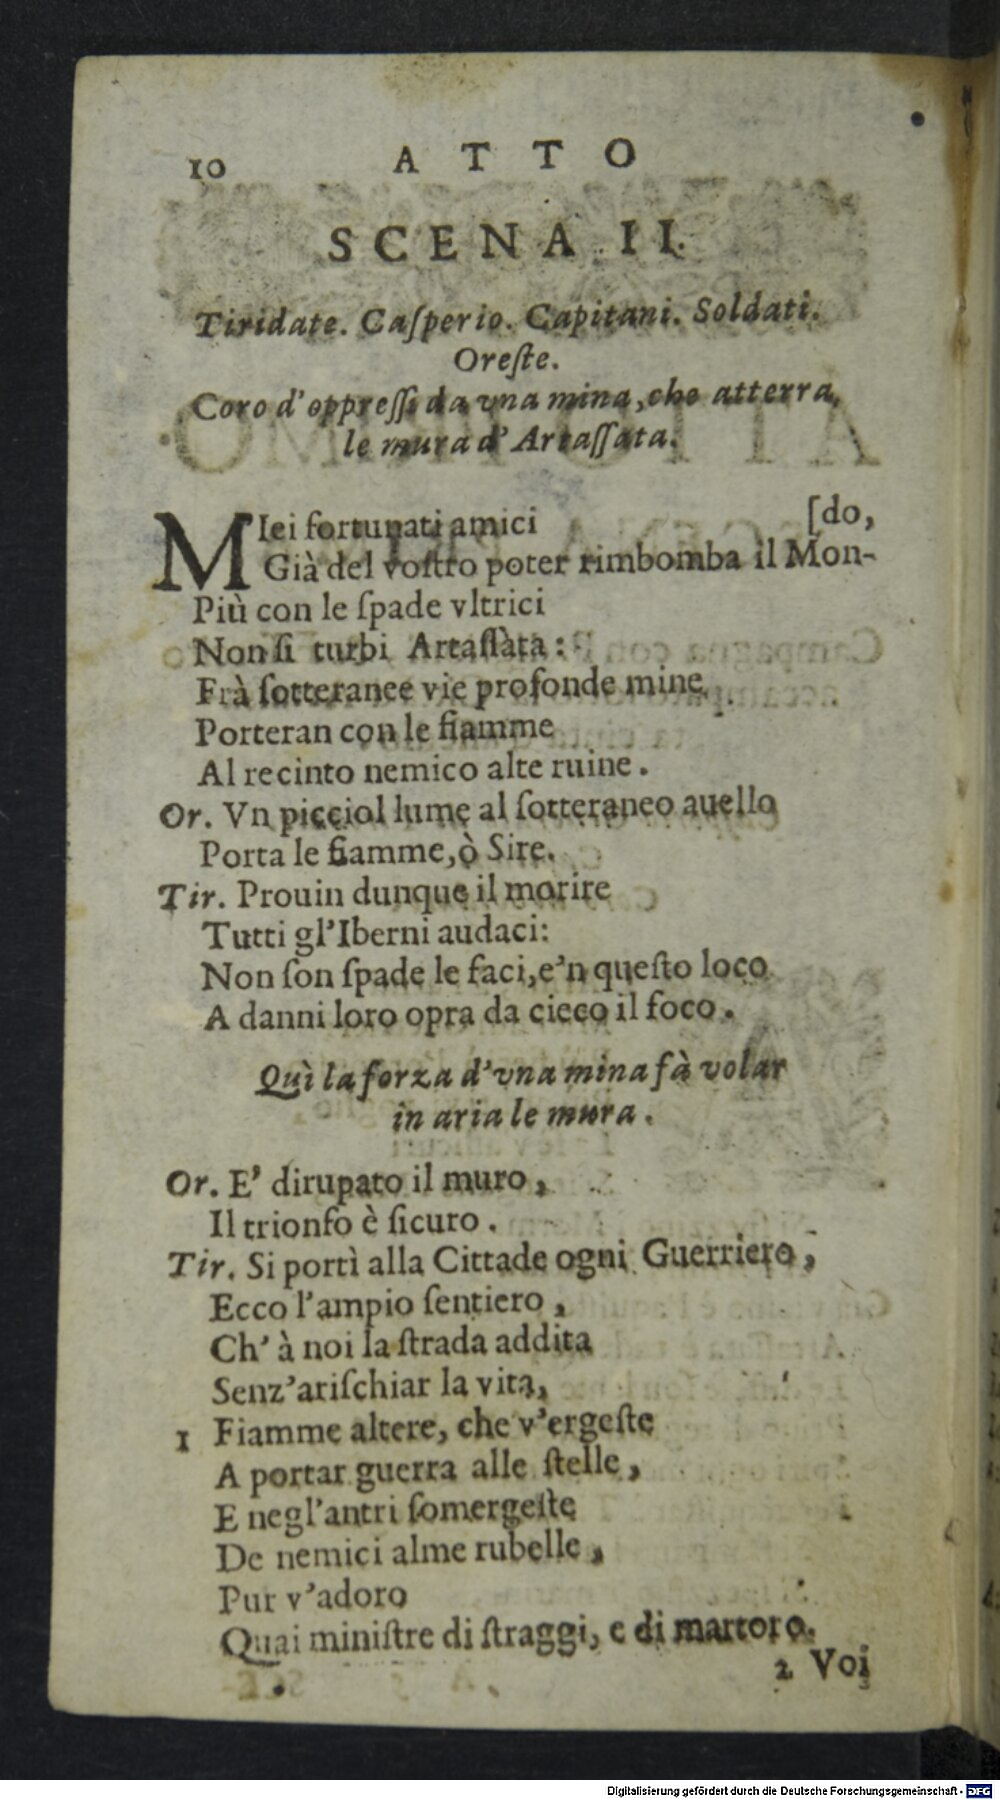 10 ATTO
SCENA II.
Tiridate. Caſperio. Capitani. Soldati.
Oreſte.
Coro d'oppreſſi da vna mina, che atterra
le mura d'Artaſſata.
MIei fortunati amici [do,
Già del voſtro poter rimbomba il Mon-
Più con le ſpade vltrici
Non ſi turbi Artaſſàta:
Frà ſotteranee vie profonde mine
Porteran con le fiamme
Al recinto nemico alte ruine.
Or. Vn picciol lume al ſotteraneo auello
Porta le fiamme, ò Sire.
Tir. Prouin dunque il morire
Tutti gl'Iberni audaci:
Non ſon ſpade le faci, e'n queſto loco
A danni loro opra da cieco il foco.
Quì la forza d'vna mina fà volar
in aria le mura.
Or. E' dirupato il muro,
Il trionfo è ſicuro.
Tir. Si portì alla Cittade ogni Guerriero,
Ecco l'ampio ſentiero,
Ch' à noi la ſtrada addita
Senz'ariſchiar la vita,
1 Fiamme altere, che v'ergeſte
A portar guerra alle ſtelle,
E negl'antri ſomergeſte
De nemici alme rubelle,
Pur v'adoro
Quai miniſtre di ſtraggi, e di martoro.
2 Voi
Digitalisierung gefördert durch die Deutsche Forschungsgemeinschaft - DFG